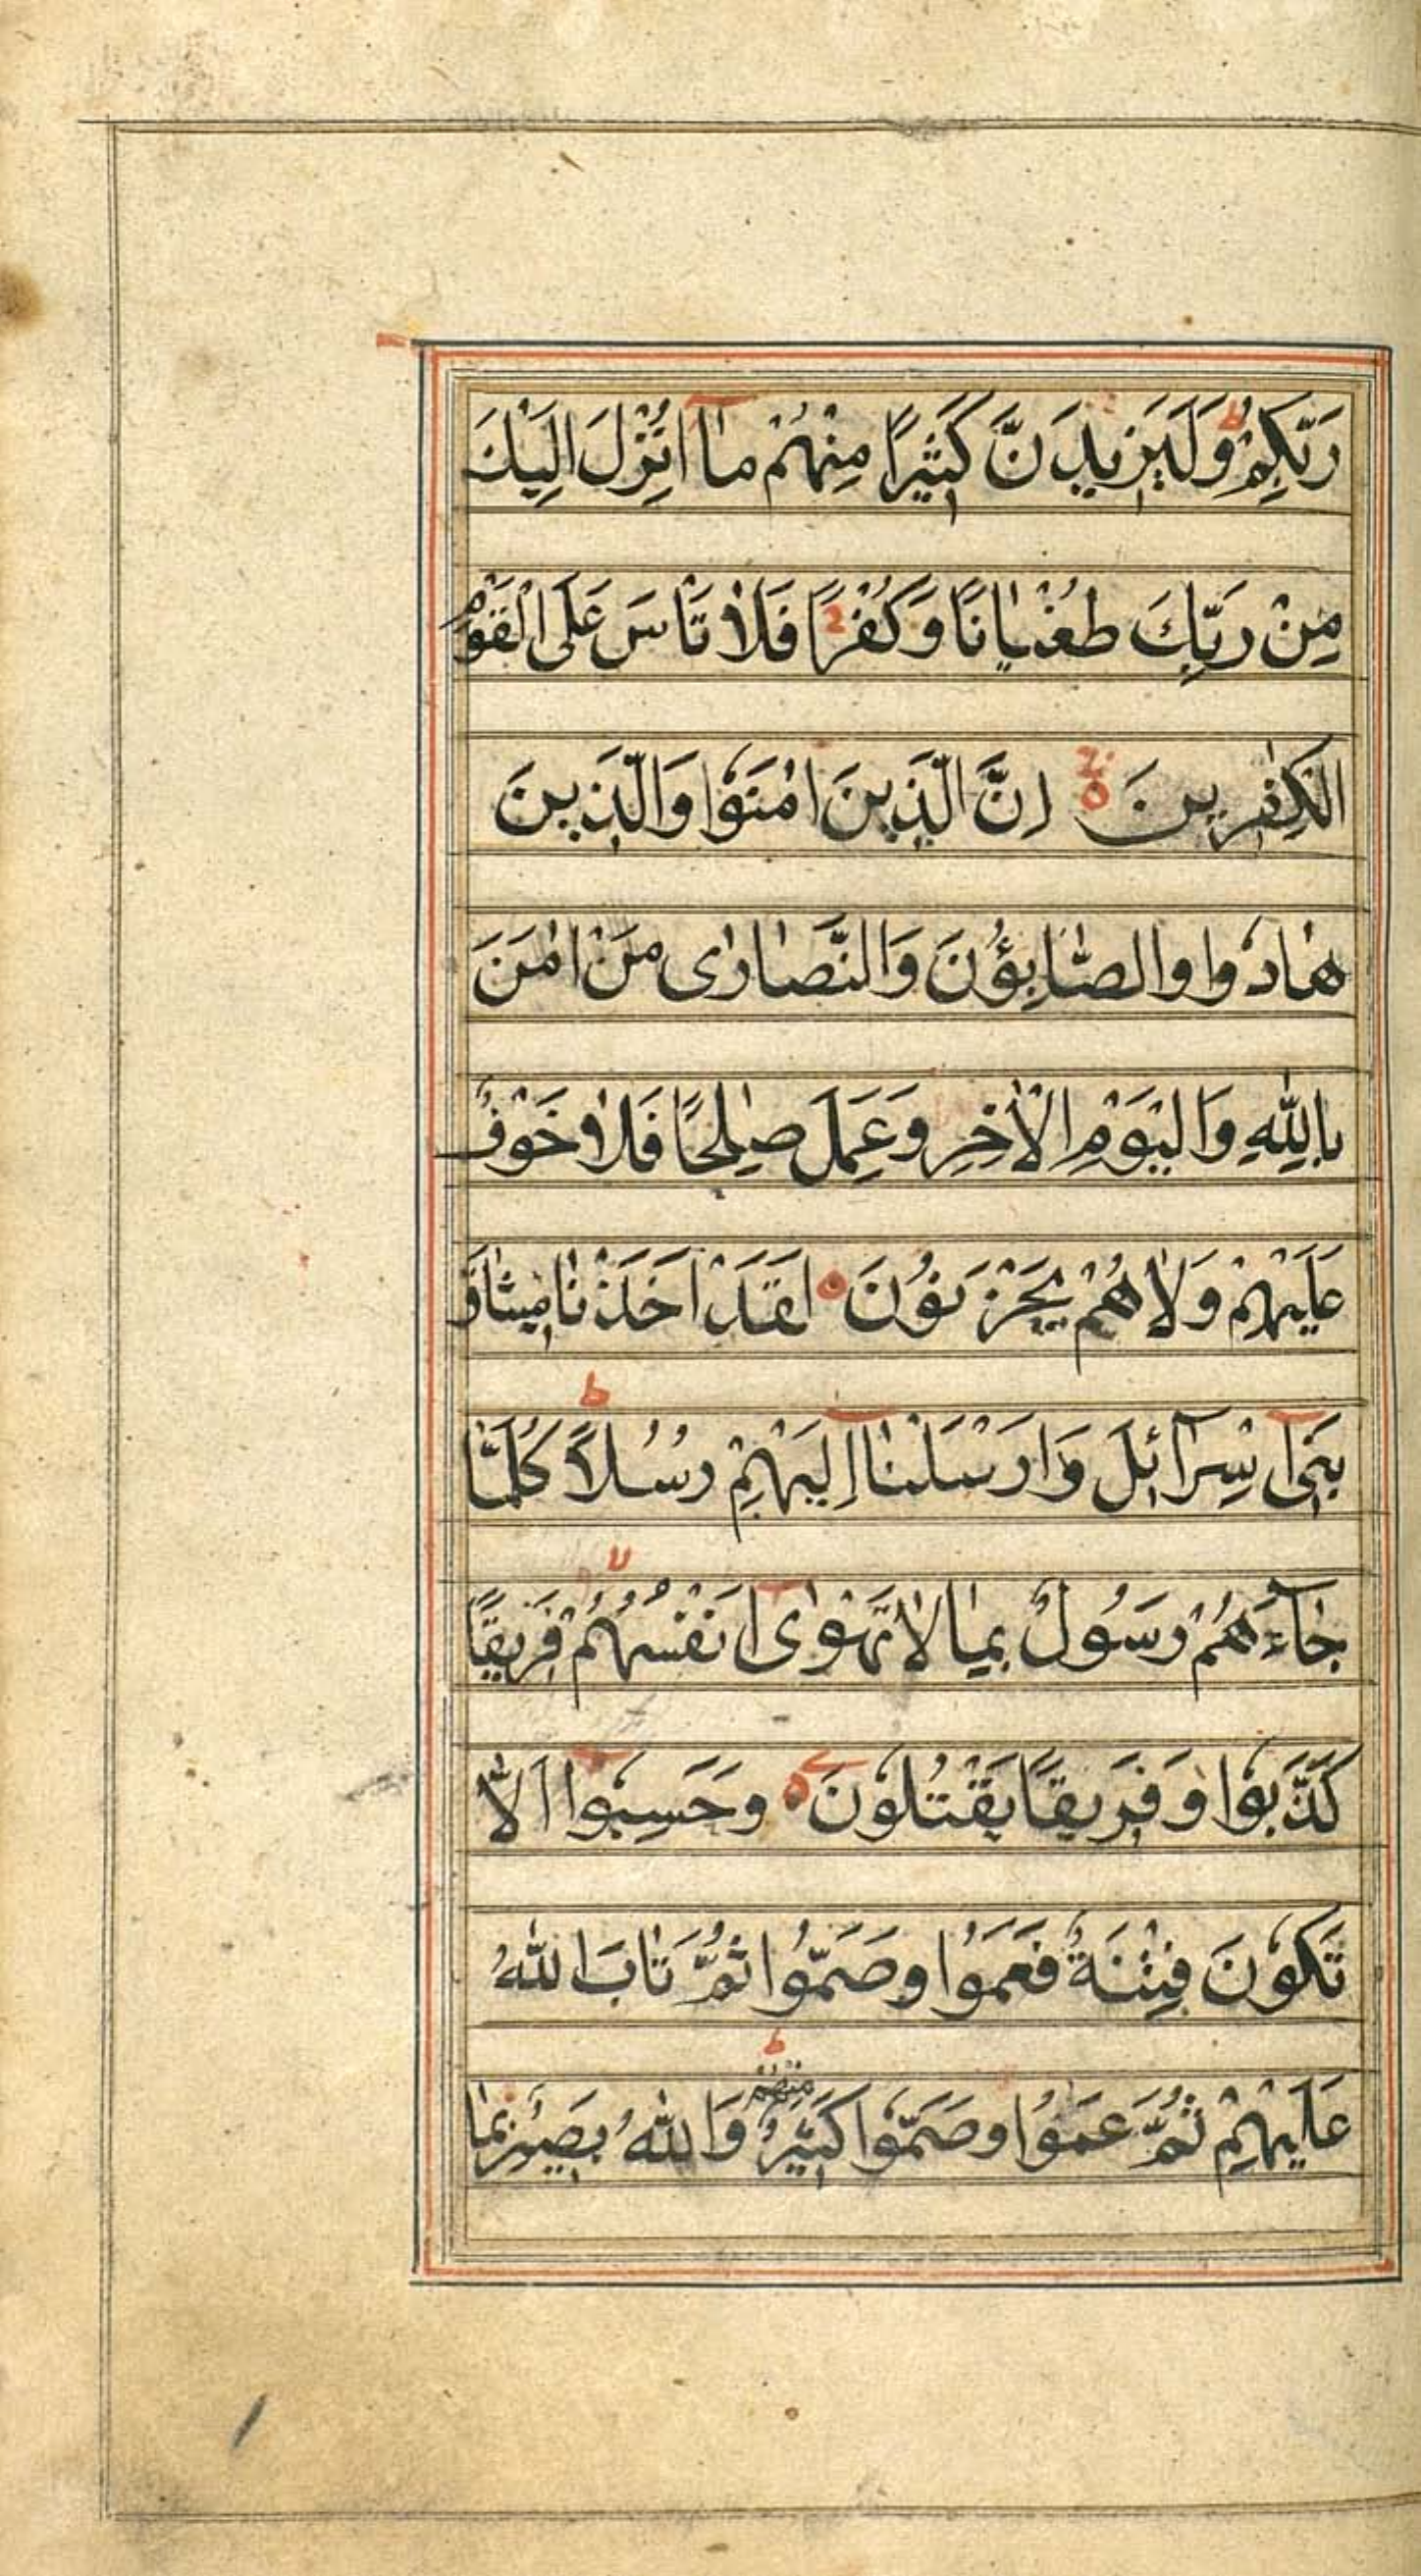 رَبِّكُمْ ط وَلَيَزِيدَنَّ كَثِيرًا مِنْهُمْ مٰآ اُنْزِلَ اِلَيْكَ
مِنْ رَبِّكَ طُغْيٰانًا وَكُفْرًا فَلٰا تَأْسَ عَلَى الْقَوْمِ
الْكٰفِرِينَ ۝ اِنَّ الَّذِينَ اٰمَنُوا وَالَّذِينَ
هٰادُوا وَالصّٰابِؤُنَ وَالنَّصٰارٰى مَنْ اٰمَنَ
بِاللّٰهِ وَالْيَوْمِ الْاٰخِرِ وَعَمِلَ صٰلِحًا فَلٰا خَوْفٌ
عَلَيْهِمْ وَلٰا هُمْ يَحْزَنُونَ ۝ لَقَدْ اَخَذْنٰا مِيثٰاقَ
بَنِىٓ اِسْرٰٓائِلَ وَاَرْسَلْنٰٓا اِلَيْهِمْ رُسُلًا ط كُلَّمٰا
جٰٓاءَهُمْ رَسُولٌ بِمٰا لٰا تَهْوٰىٓ اَنْفُسُهُمْ لا فَرِيقًا
كَذَّبُوا وَفَرِيقًا يَقْتُلُونَ ۝ وَحَسِبُوٓا اَلّٰا
تَكُونَ فِتْنَةٌ فَعَمُوا وَصَمُّوا ثُمَّ تٰابَ اللّٰهُ
عَلَيْهِمْ ثُمَّ عَمُوا وَصَمُّوا كَثِيرٌ مِنْهُمْ ط وَاللّٰهُ بَصِيرٌ بِمٰا